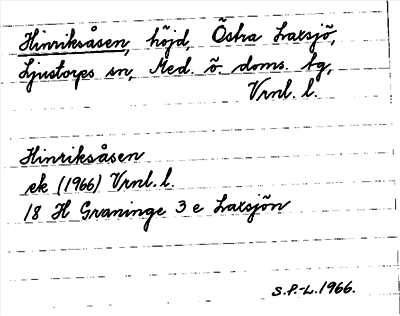 Hinriksåsen, höjd, Östra Laxsjö,
Ljustorps sn, Med. ö. doms. tg,
Vrnl. l.
Hinriksåsen
ek (1966) Vrnl. l.
18 H Graninge 3 e Laxsjön
S.P.-L. 1966.